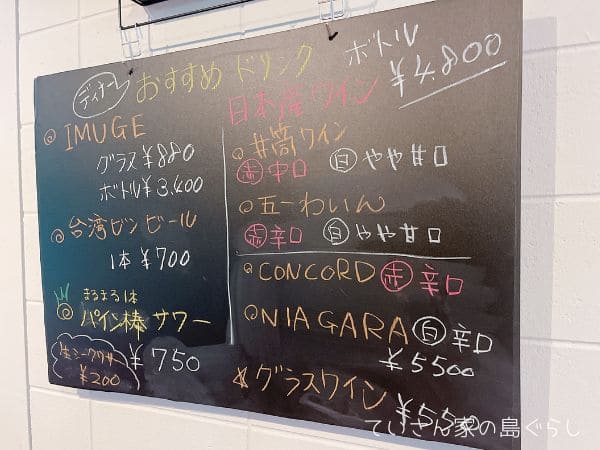 ディナー おすすめ ドリンク
IMUGE
グラス ¥880
ボトル ¥3,400
台湾ビンビール
1本 ¥700
まるまる1本
パイン棒サワー
¥750
生シークワサー
¥200
ボトル
¥4,800
日本産ワイン
井筒ワイン
赤 中口 白 やや甘口
五一わいん
赤 辛口 白 やや甘口
CONCORD 赤 辛口
NIAGARA 白 辛口
¥5500
☆グラスワイン
ていさん家の島ぐらし